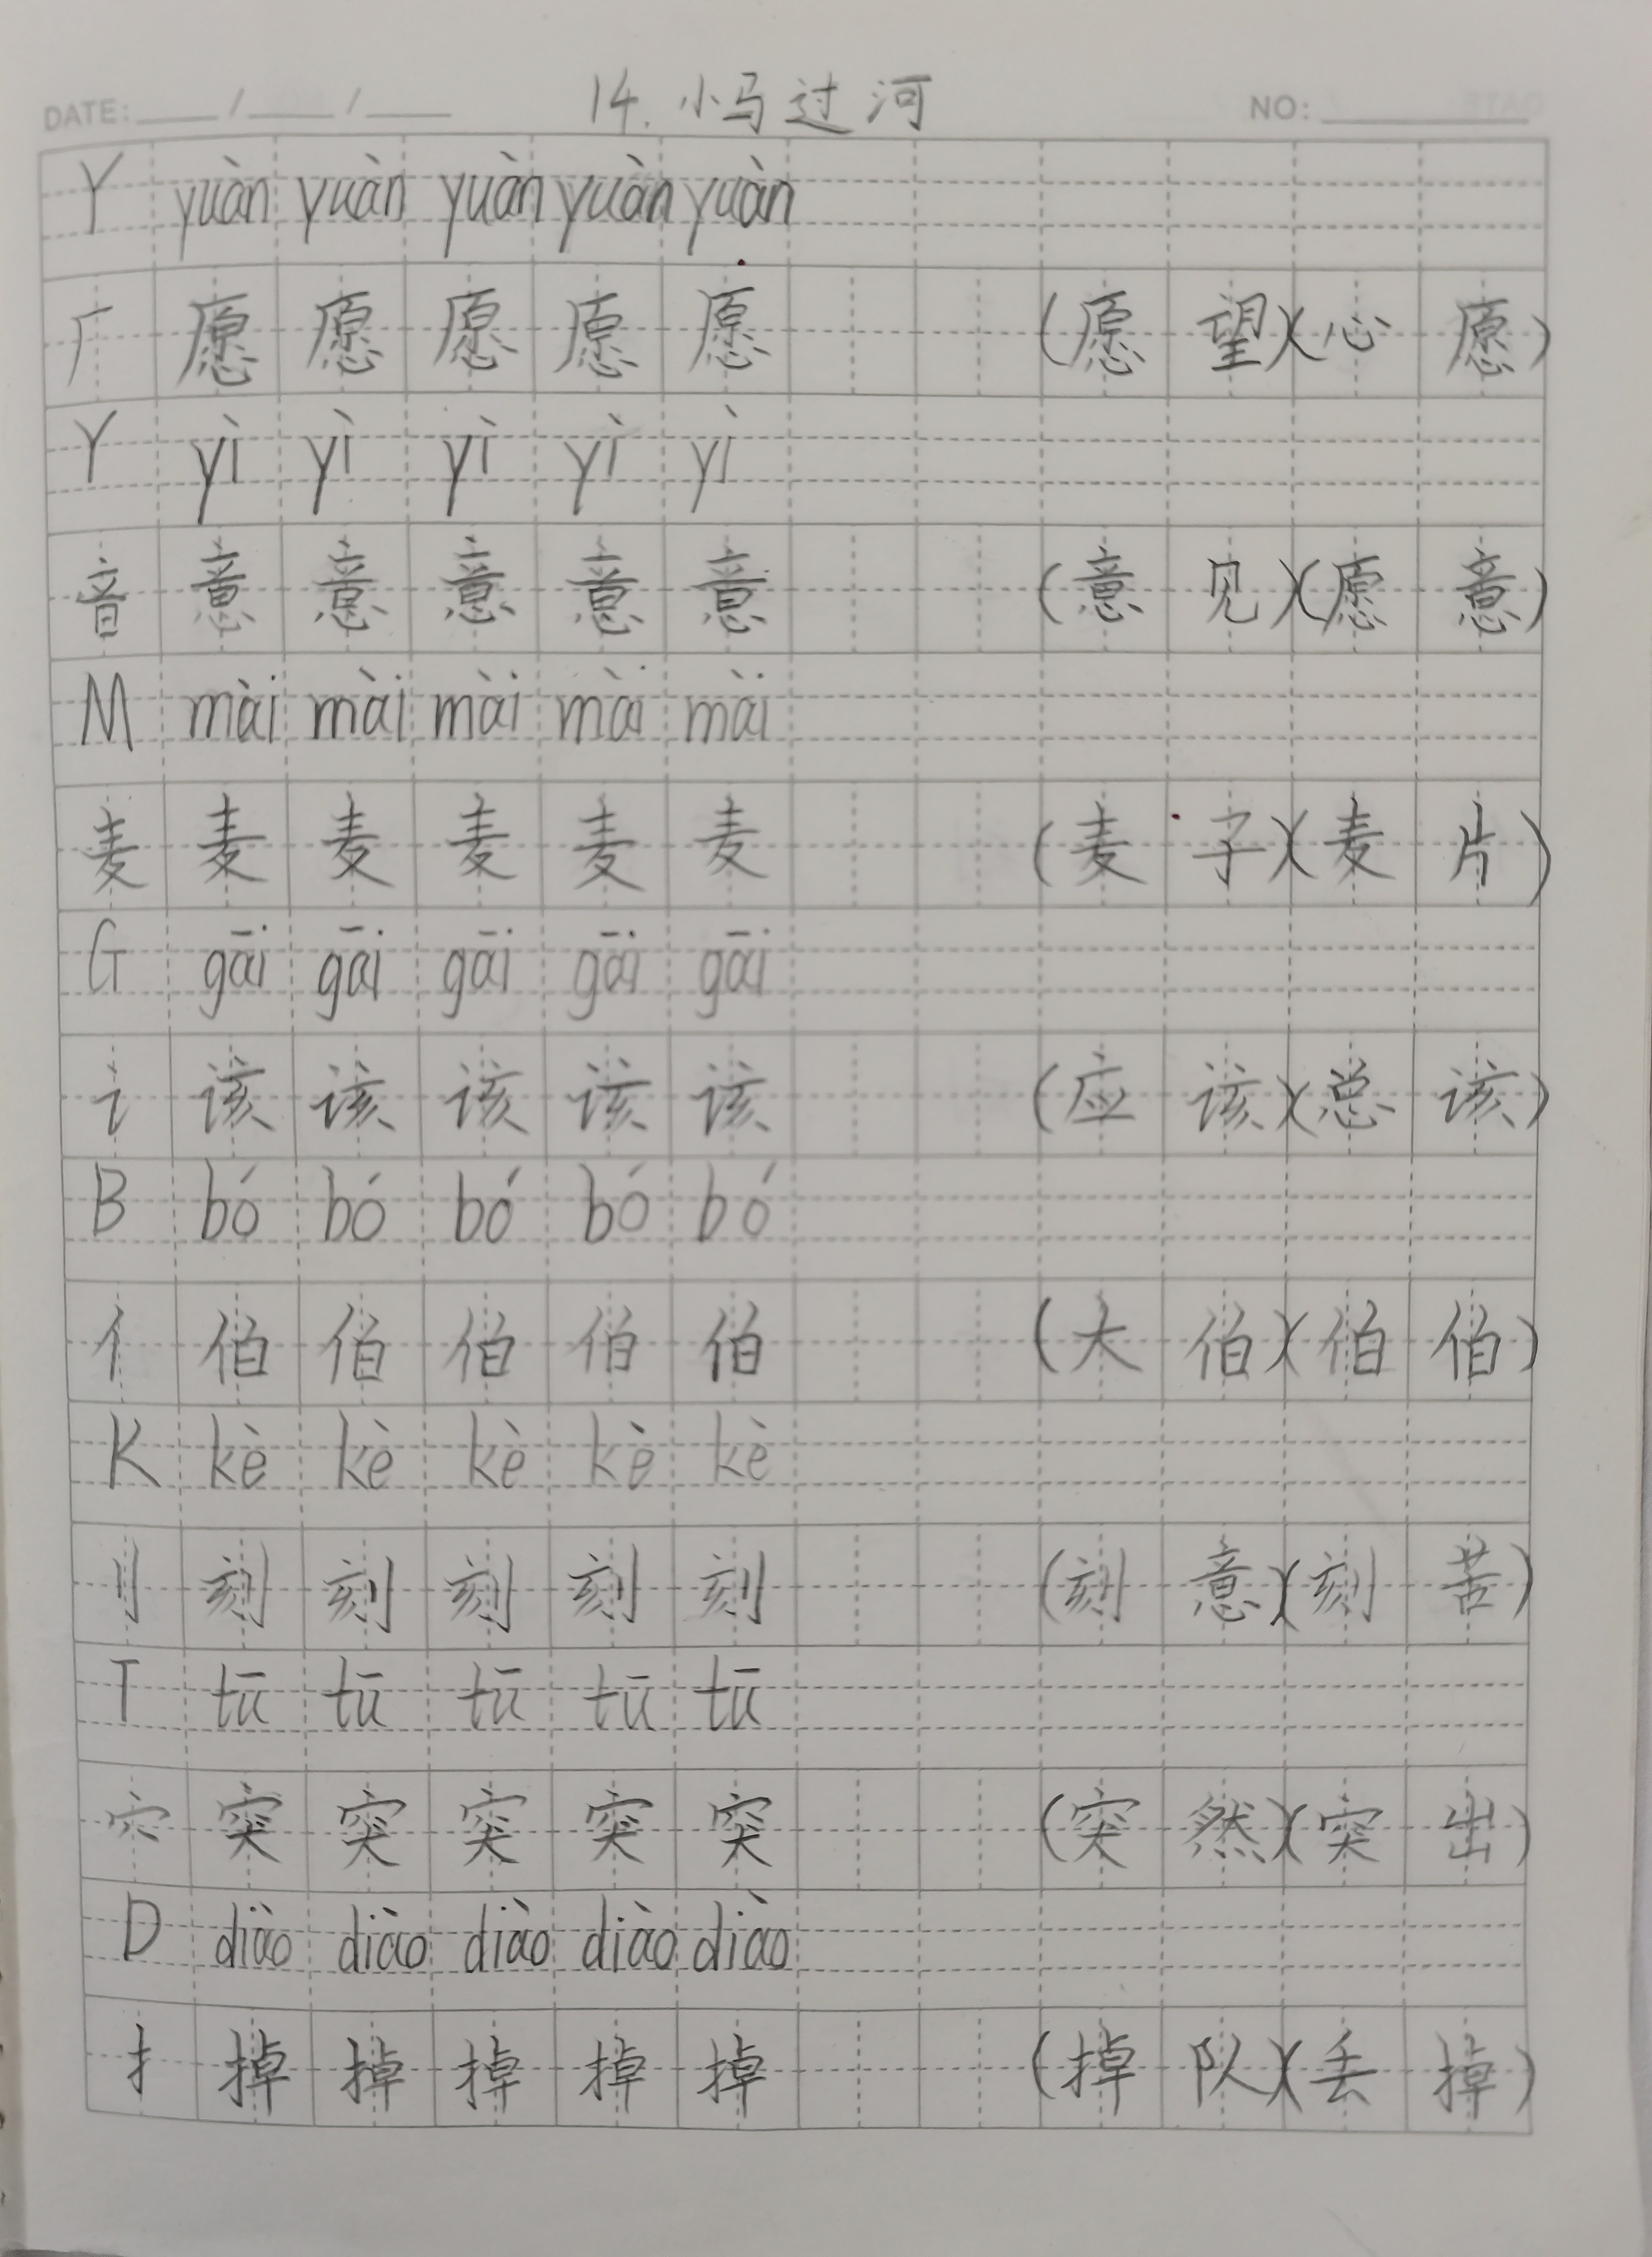 DATE: / / 14.小马过河 NO:
Y yuàn yuàn yuàn yuàn yuàn
厂 愿 愿 愿 愿 愿 (愿望)(心愿)
Y yì yì yì yì yì
音 意 意 意 意 意 (意见)(愿意)
M mài mài mài mài mài
麦 麦 麦 麦 麦 麦 (麦子)(麦片)
G gāi gāi gāi gāi gāi
讠 该 该 该 该 该 (应该)(总该)
B bó bó bó bó bó
亻 伯 伯 伯 伯 伯 (大伯)(伯伯)
K kè kè kè kè kè
刂 刻 刻 刻 刻 刻 (刻意)(刻苦)
T tū tū tū tū tū
穴 突 突 突 突 突 (突然)(突出)
D diào diào diào diào diào
扌 掉 掉 掉 掉 掉 (掉队)(丢掉)